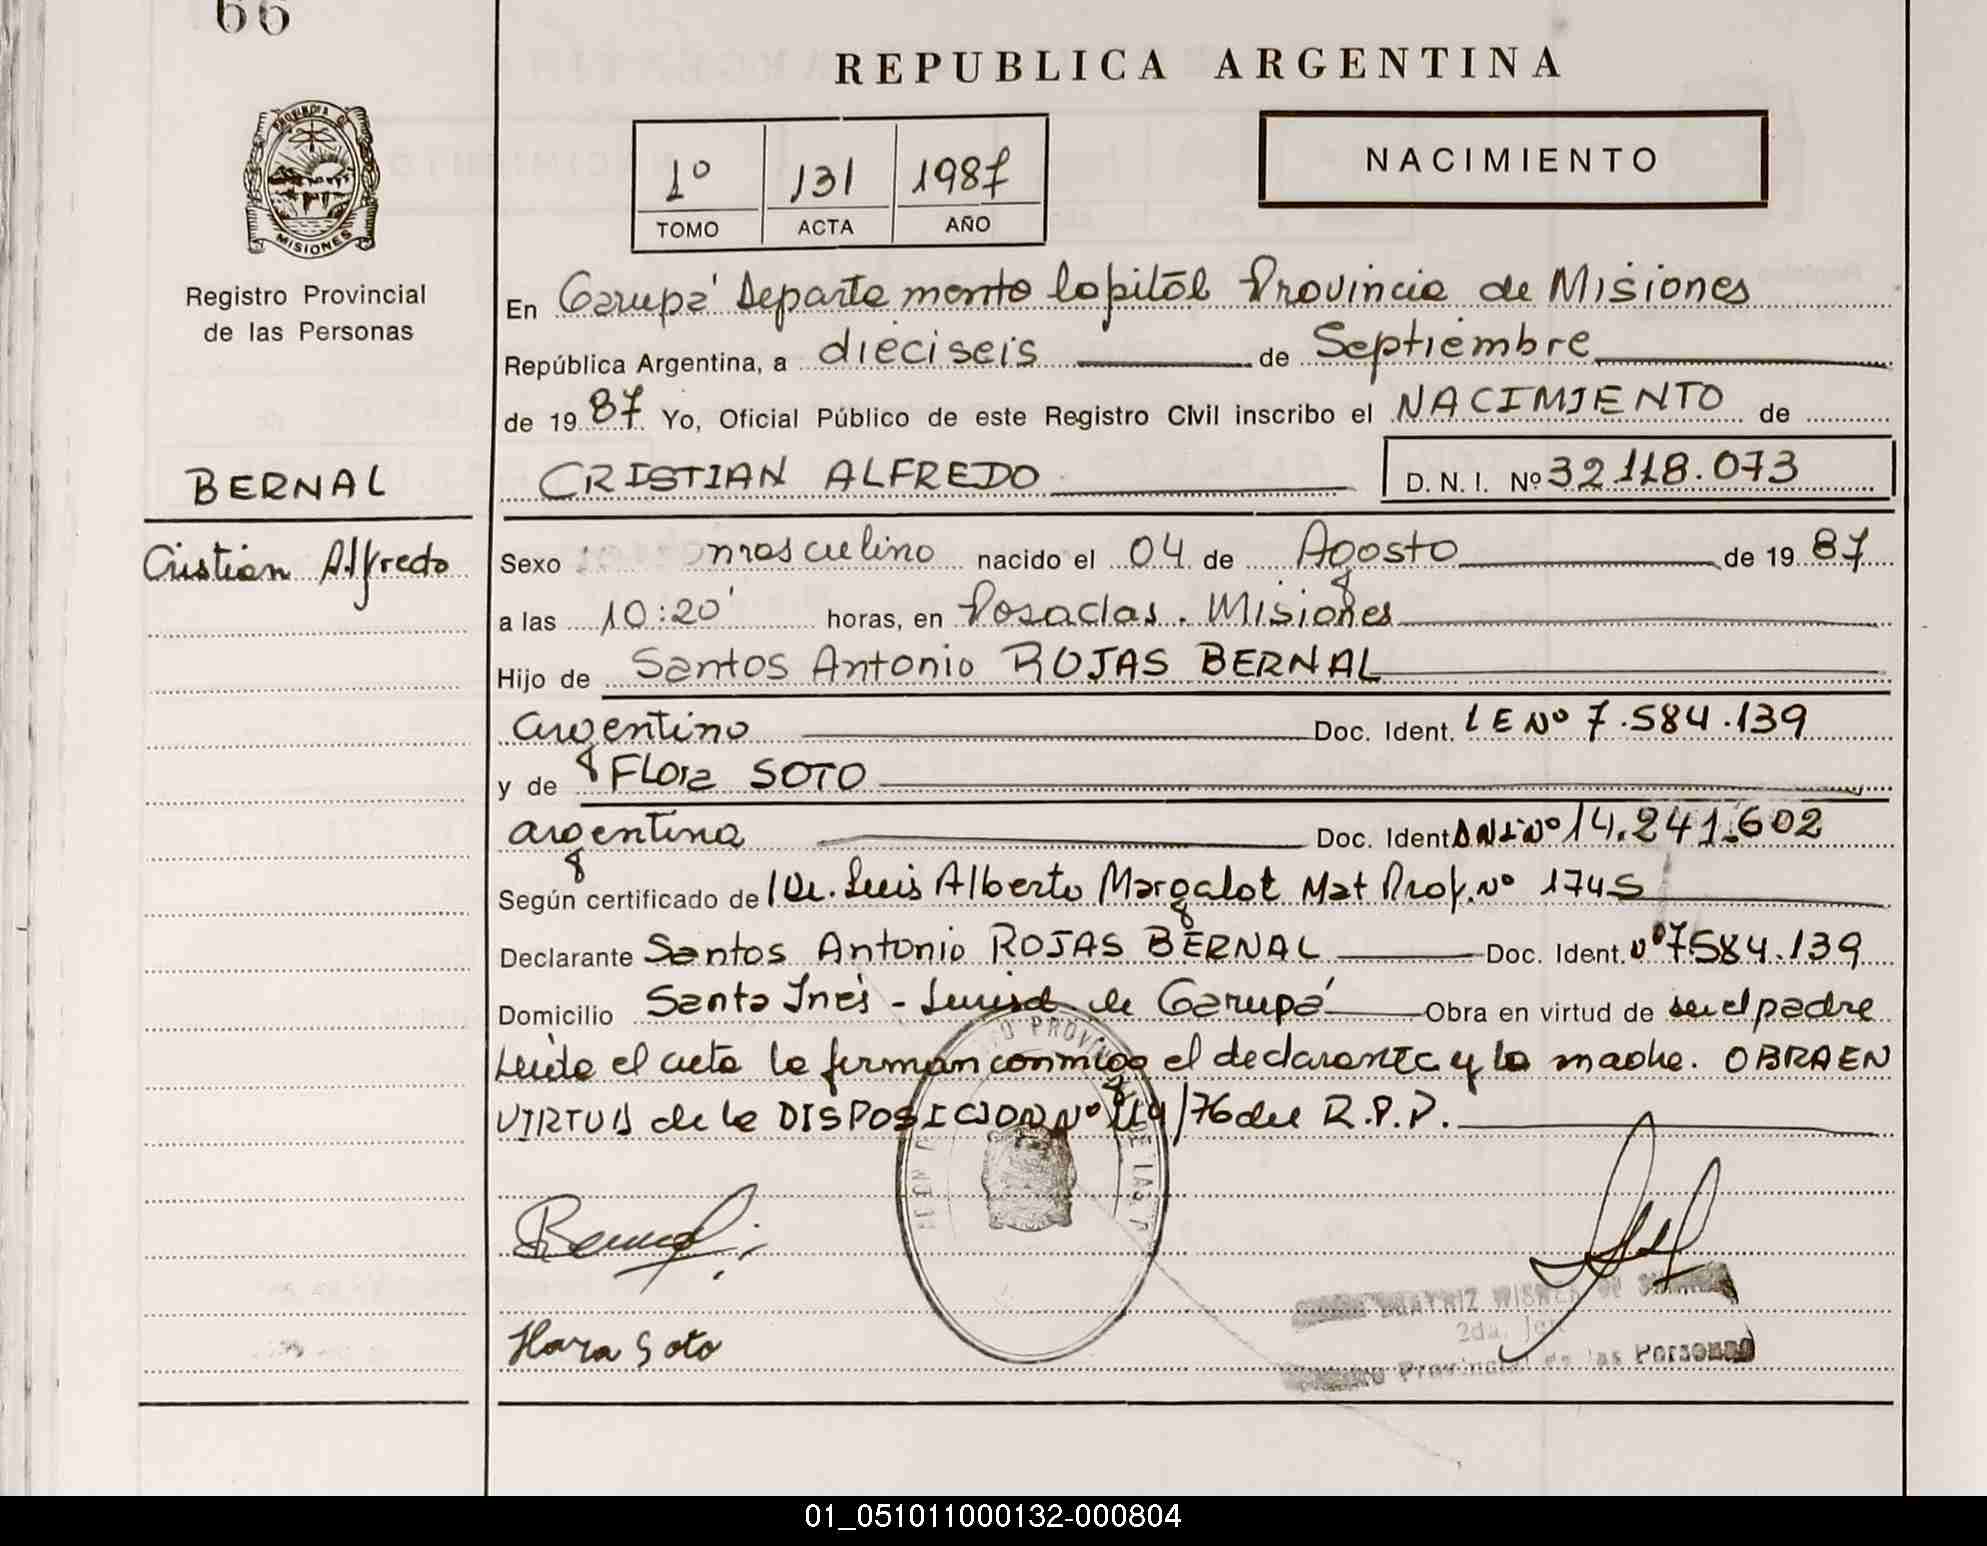 66
REPUBLICA ARGENTINA
PROVINCIA DE
MISIONES
Registro Provincial
de las Personas
1º 131 1987
TOMO ACTA AÑO
NACIMIENTO
En Garupá Departamento Capital Provincia de Misiones
República Argentina, a dieciseis de Septiembre
de 1987 Yo, Oficial Público de este Registro Civil inscribo el NACIMIENTO de
BERNAL
Cristian Alfredo
CRISTIAN ALFREDO D. N. I. Nº 32118.073
Sexo masculino nacido el 04 de Agosto de 1987
a las 10:20' horas, en Posadas. Misiones
Hijo de Santos Antonio ROJAS BERNAL
argentino Doc. Ident. LE Nº 7.584.139
y de Flora SOTO
argentina Doc. Ident DNI Nº 14.241.602
Según certificado de Dr. Luis Alberto Margalot Mat Prof. Nº 1745
Declarante Santos Antonio ROJAS BERNAL Doc. Ident. Nº 7584.139
Domicilio Santa Inés - de Garupá Obra en virtud de ser el padre
Leída el acta la firman conmigo el declarante y la madre. OBRA EN
VIRTUD de la DISPOSICION Nº /76 del R.P.P.
PROVIN DE LAS P
Bernal
Flora Soto
BEATRIZ DE
2da. Jef
Provincial de las Personas
01_051011000132-000804